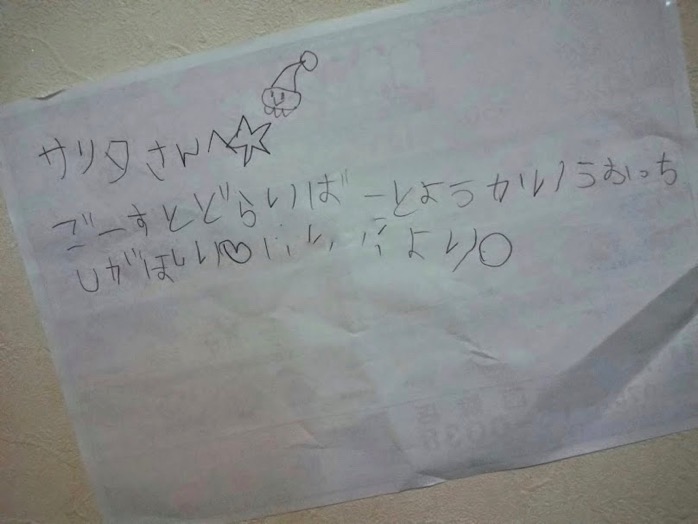 サリタさんへ☆
ごーすとどらいばーとようかいうおっち
しがほしい♡ より○